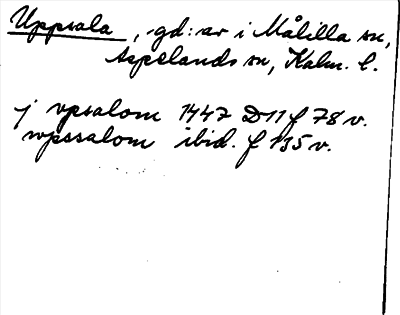 Uppsala, gd:ar i Målilla sn,
Aspelands sn, Kalm. l.
j vpsalom 1447 D11 f 78 v.
wpssalom ibid. f 135 v.